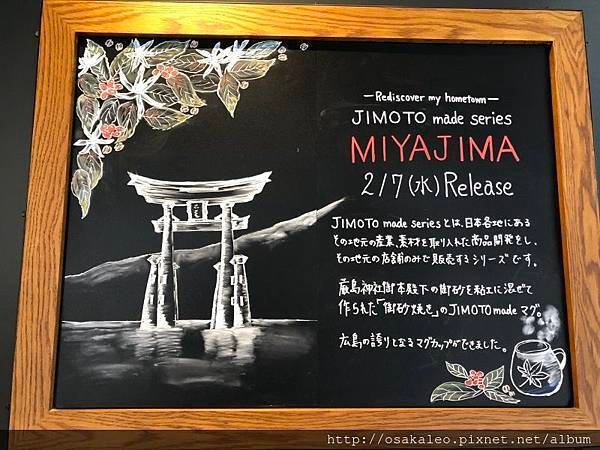 — Rediscover my hometown —
JIMOTO made series
MIYAJIMA
2/7(水)Release
JIMOTO made seriesとは、日本各地にある
その地元の産業、素材を取り入れた商品開発をし、
その地元の店舗のみで販売するシリーズです。
厳島神社御本殿下の御砂を粘土に混ぜて
作られた「御砂焼き」のJIMOTO madeマグ。
広島の誇りとなるマグカップができました。
http://osakaleo.pixnet.net/album